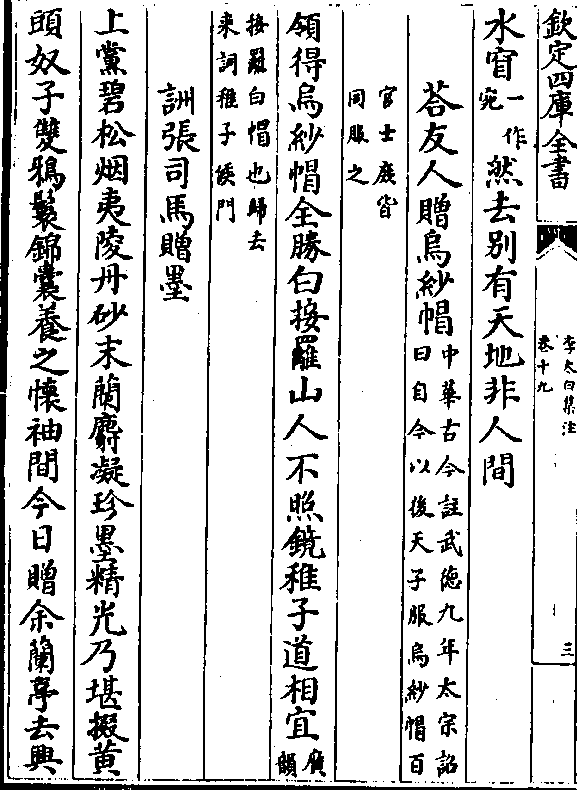 欽定四庫全書
李太白集注
卷十九
三
水窅一作宛然去别有天地非人間
荅友人贈烏紗帽中華古今註武德九年太宗詔曰自今以後天子服烏紗帽百
官士庶皆同服之
領得烏紗帽全勝白接䍦山人不照鏡稚子道相宜廣韻
接䍦白帽也歸去来詞稚子候門
詶張司馬贈墨
上黨碧松烟夷陵丹砂末蘭麝凝珍墨精光乃堪掇黄
頭奴子雙鴉鬟錦囊養之懷袖間今日贈余蘭亭去興